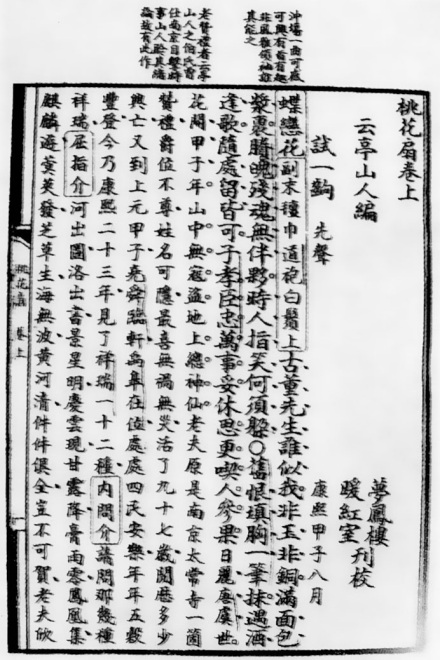 冲場一曲可感
可興有旨有趣
非風雅領袖誰
其能之
老贊禮者一亭
山人之伯氏曾
仕南京目擊時
事山人聆其緒
論故有此作
桃花扇卷上
云亭山人編
夢鳳樓
暖紅室刊校
試一齣 先聲 康熙甲子八月
蝶戀花副末氊巾道袍白鬚上古董先生誰似我非玉非銅滿面包
漿裹賸魄殘魂無伴夥時人指笑何須躲○舊恨填胸一筆抹遇酒
逢歌隨處留皆可子孝臣忠萬事妥休思更喫人參果日麗唐虞世
花開甲子年山中無寇盜地上總神仙老夫原是南京太常寺一箇
贊禮爵位不尊姓名可隱最喜無禍無災活了九十七歲閱歷多少
興亡又到上元甲子堯舜臨軒禹皋在位處處四民安樂年年五穀
豐登今乃康熙二十三年見了祥瑞一十二種內問介請問那幾種
祥瑞屈指介河出圖洛出書景星明慶雲現甘露降膏雨零鳳凰集
麒麟遊蓂莢發芝草生海無波黃河清件件俱全豈不可賀老夫欣
桃花扇 卷上